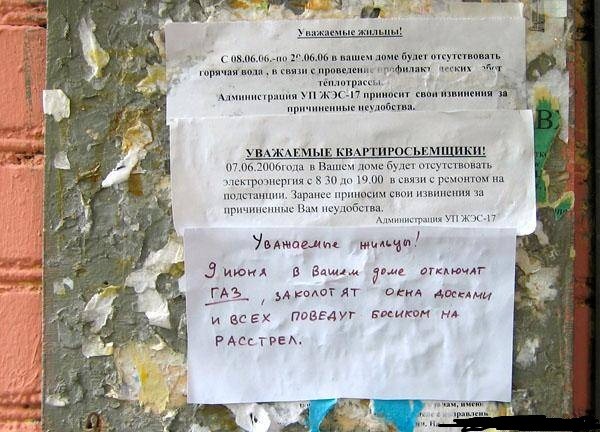 Уважаемые жильцы!
С 08.06.06.-по 20.06.06 в вашем доме будет отсутствовать
горячая вода , в связи с проведение профилактических работ
теплотрассы.
Администрация УП ЖЭС-17 приносит свои извинения за
причиненные неудобства.
УВАЖАЕМЫЕ КВАРТИРОСЪЕМЩИКИ!
07.06.2006года в Вашем доме будет отсутствовать
электроэнергия с 8 30 до 19.00 в связи с ремонтом на
подстанции. Заранее приносим свои извинения за
причиненные Вам неудобства.
Администрация УП ЖЭС-17
Уважаемые жильцы!
9 июня в Вашем доме отключат
ГАЗ , заколотят окна досками
и всех поведут босиком на
расстрел.
В